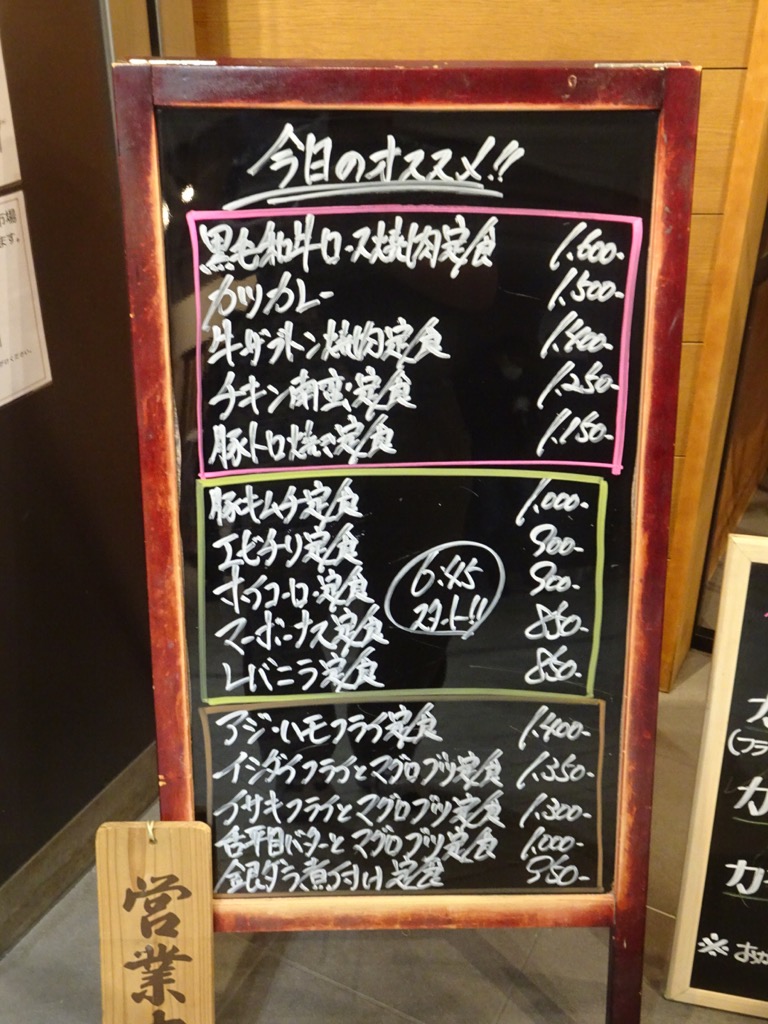 今日のオススメ!!
黒毛和牛ロース焼肉定食 1,600-
カツカレー 1,500-
牛ザブトン焼肉定食 1,400-
チキン南蛮定食 1,250-
豚トロ焼き定食 1,150-
豚キムチ定食 1,000-
エビチリ定食 900-
ホイコーロー定食 900-
マーボーナス定食 850-
レバニラ定食 850-
6:45
スタート!!
アジ・ハモフライ定食 1,400-
イシダイフライとマグロブツ定食 1,350-
イサキフライとマグロブツ定食 1,300-
舌平目バターとマグロブツ定食 1,000-
銀ダラ煮付け定食 950-
営業
市場
ます。
ください。
カ
(フラ
カ
カ
※おか